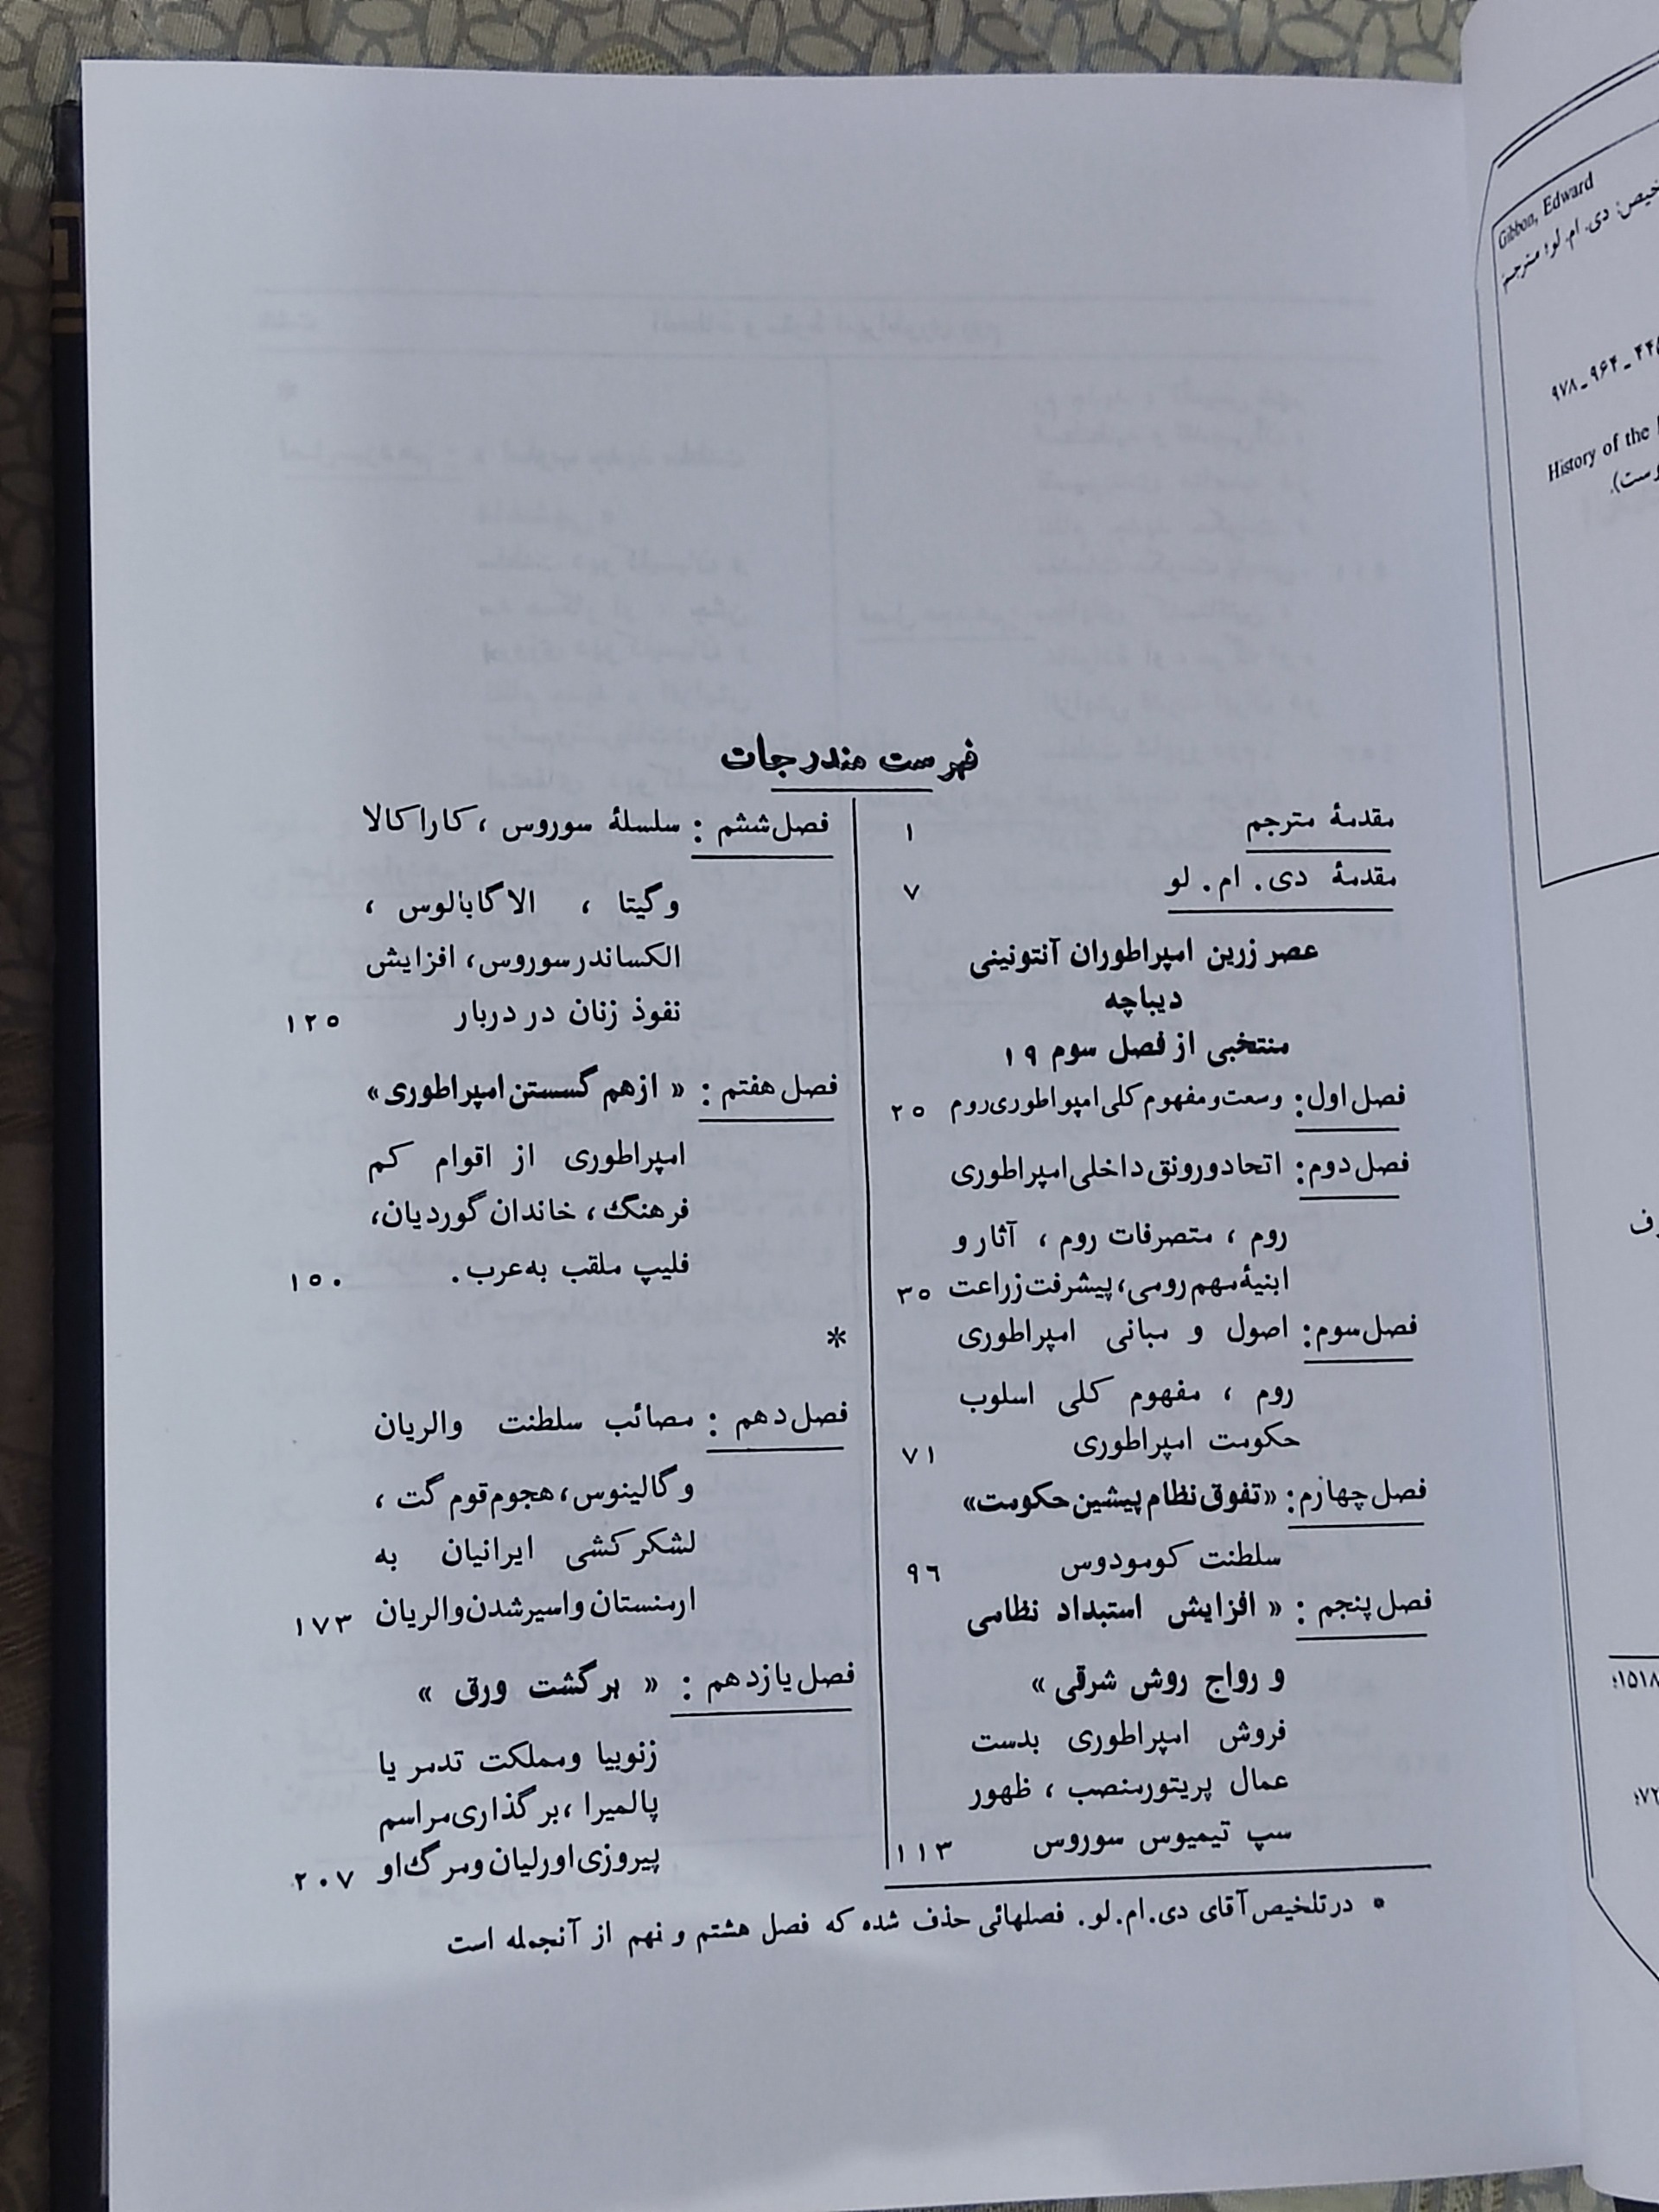 فهرست مندرجات
مقدمهٔ مترجم ۱
مقدمهٔ دی. ام. لو ۷
عصر زرین امپراطوران آنتونینی
دیباچه
منتخبی از فصل سوم ۱۹
فصل اول: وسعت و مفهوم کلی امپراطوری روم ۲۵
فصل دوم: اتحاد و رونق داخلی امپراطوری
روم ، متصرفات روم ، آثار و
ابنیهٔ مهم رومی، پیشرفت زراعت ۳۵
فصل سوم: اصول و مبانی امپراطوری
روم ، مفهوم کلی اسلوب
حکومت امپراطوری ۷۱
فصل چهارم: «تفوق نظام پیشین حکومت»
سلطنت کومودوس ۹۶
فصل پنجم : « افزایش استبداد نظامی
و رواج روش شرقی »
فروش امپراطوری بدست
عمال پریتورمنصب ، ظهور
سپ تیمیوس سوروس ۱۱۳
فصل ششم : سلسلهٔ سوروس ، کاراکالا
و گیتا ، الاگابالوس ،
الکساندر سوروس، افزایش
نفوذ زنان در دربار ۱۲۵
فصل هفتم : « ازهم گسستن امپراطوری»
امپراطوری از اقوام کم
فرهنگ ، خاندان گوردیان،
فلیپ ملقب به عرب . ۱۵۰
*
فصل دهم : مصائب سلطنت والریان
و گالینوس، هجوم قوم گت ،
لشکرکشی ایرانیان به
ارمنستان و اسیر شدن والریان ۱۷۳
فصل یازدهم : « برگشت ورق »
زنوبیا ومملکت تدمر یا
پالمیرا ، برگذاری مراسم
پیروزی اورلیان و مرگ او ۲۰۷
* در تلخیص آقای دی. ام. لو. فصلهائی حذف شده که فصل هشتم و نهم از آنجمله است
Gibbon, Edward
دی. ام. لو؛ مترجم:
۹۷۸ـ۹۶۴ـ۴۴۵
History of the